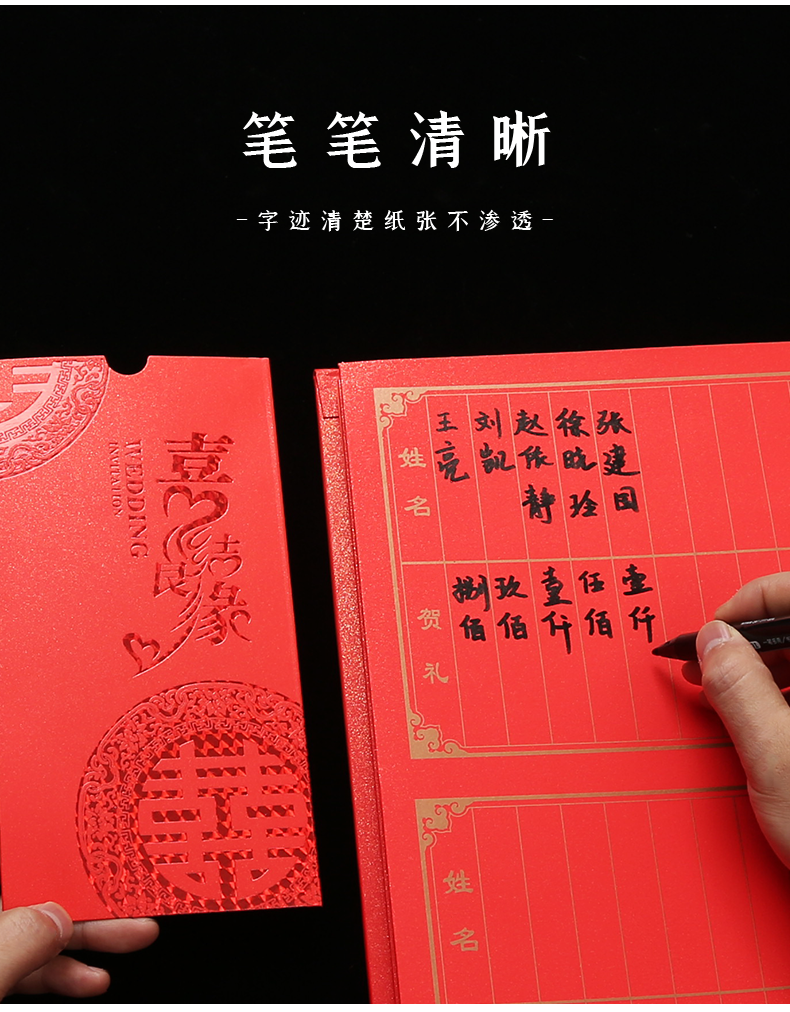 笔笔清晰
-字迹清楚纸张不渗透-
喜结良缘
WEDDING
INVITATION
姓名
王亮
刘凯
赵依静
徐晓玲
张建国
贺礼
捌佰
玖佰
壹仟
伍佰
壹仟
姓名